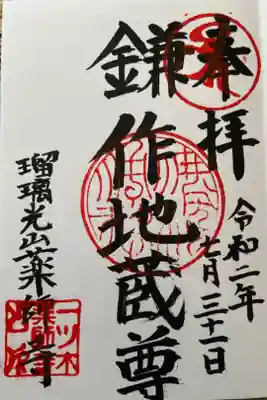 奉拝
令和二年
七月三十一日
鎌作地蔵尊
瑠璃光山薬師寺